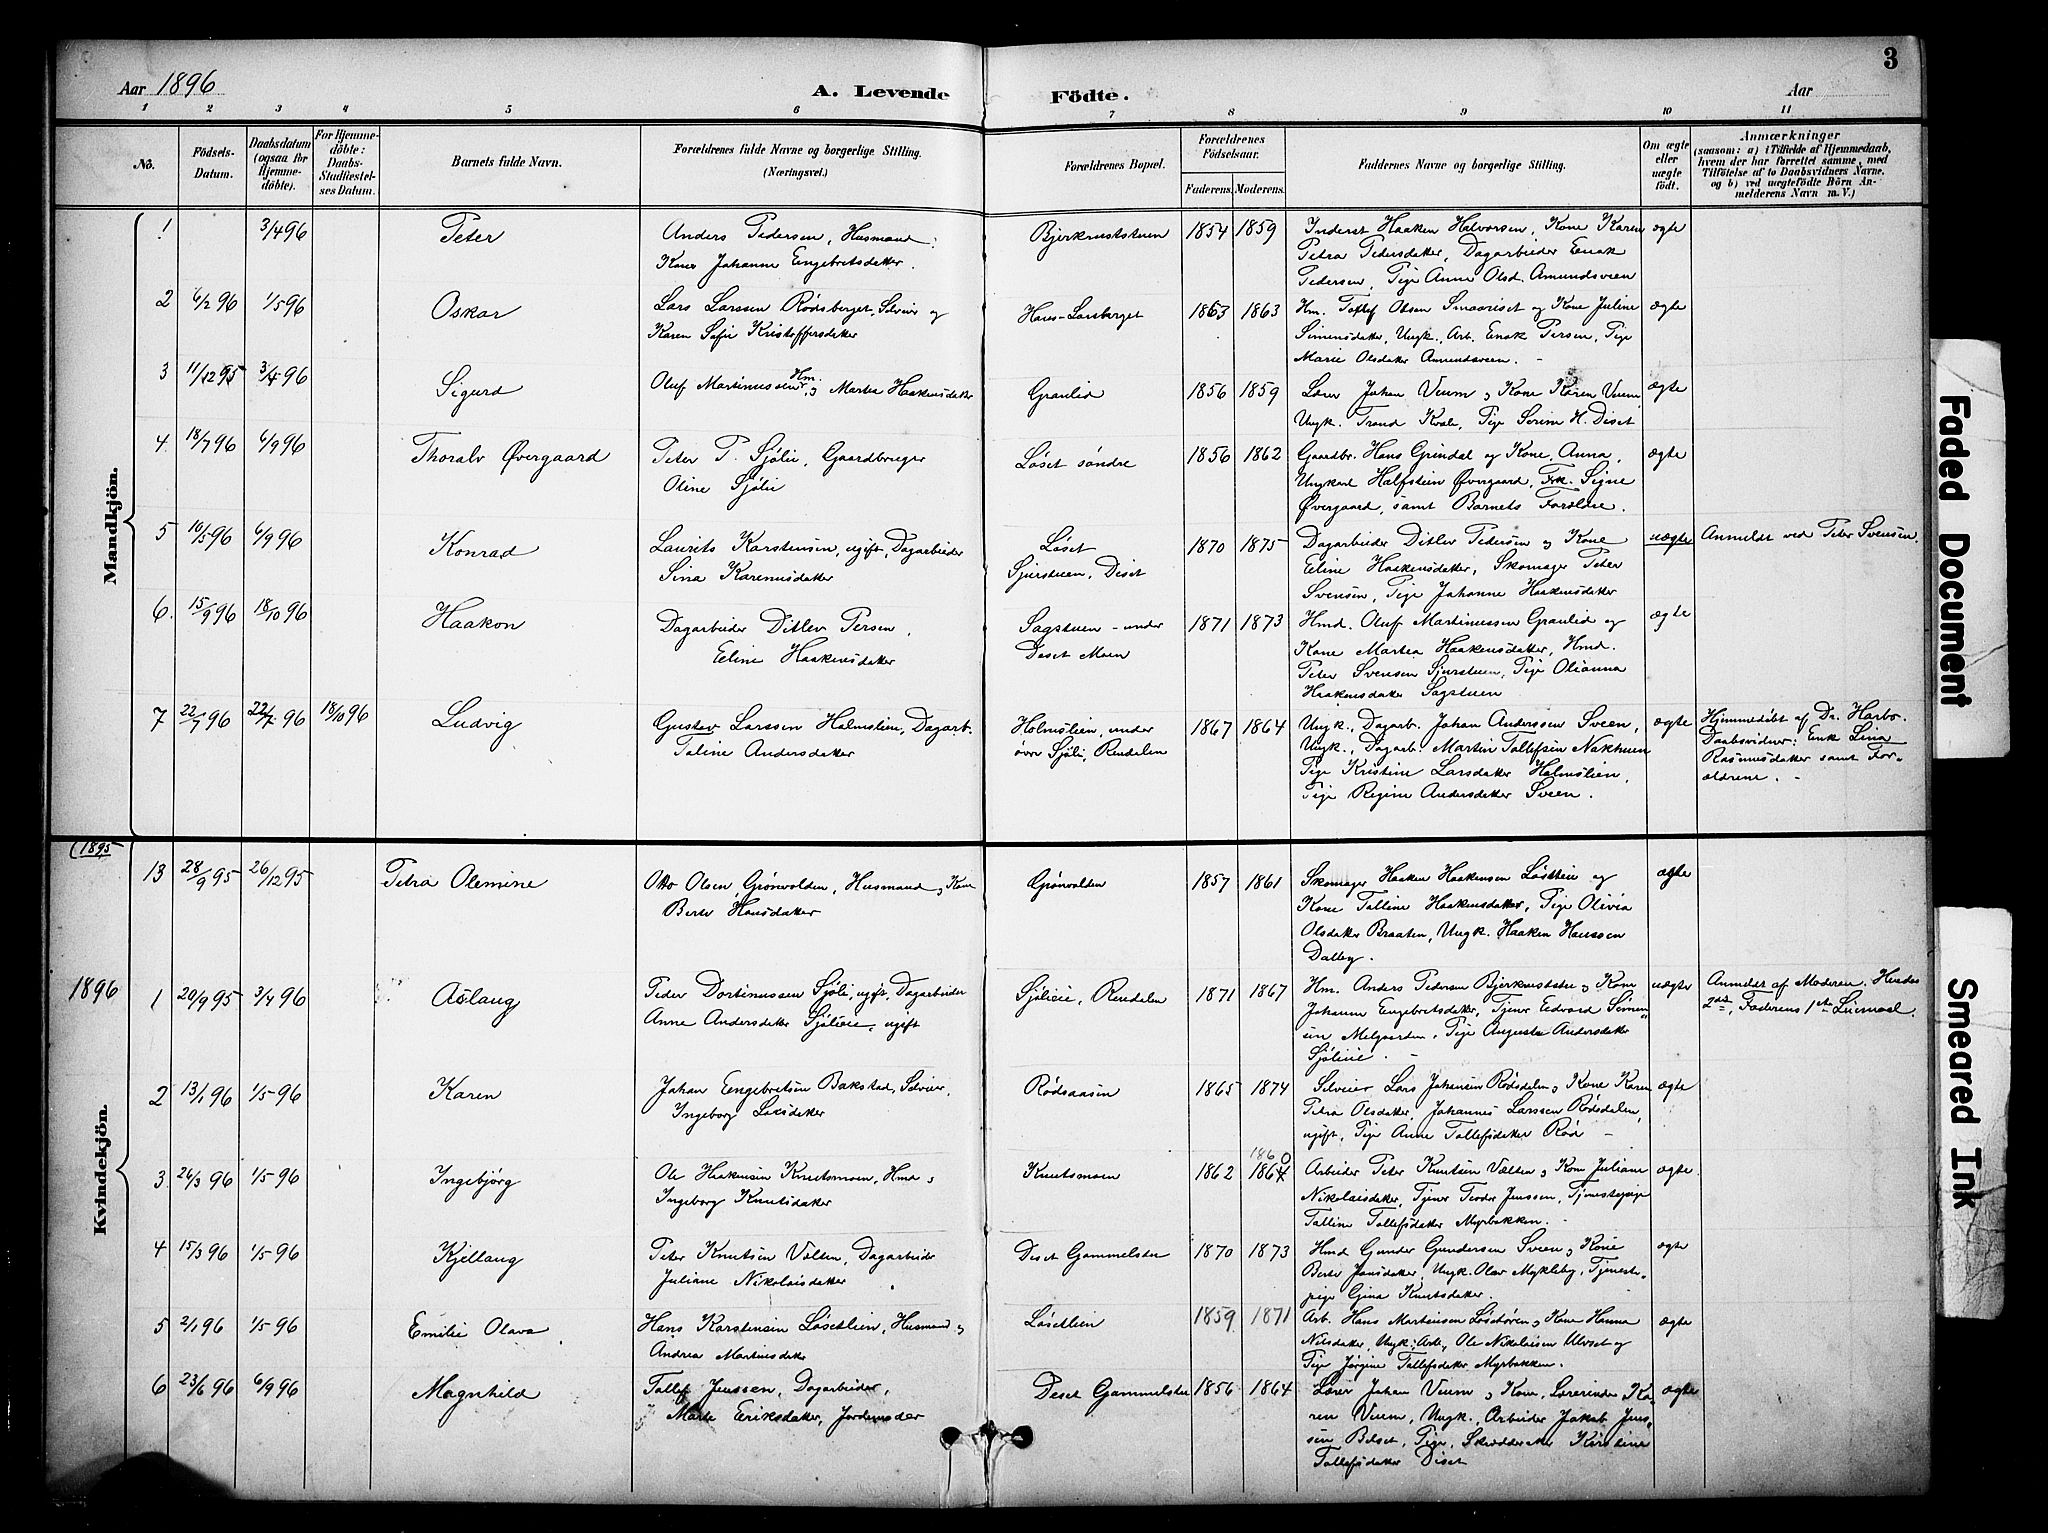 3
Aar 1896
A. Levende
Födte.
Aar
1 2 3 4 5 6 7 8 9 10 11
No.
Födsels-
Datum.
Daabsdatum
(ogsaa for
Hjemme-
döbte).
For Hjemme-
döbte:
Daabs-
Stadfæstel-
ses Datum.
Barnets fulde Navn.
Forældrenes fulde Navne og borgerlige Stilling.
(Næringsvei.)
Forældrenes Bopæl.
Forældrenes
Födselsaar.
Faderens. Moderens.
Faddernes Navne og borgerlige Stilling.
Om ægte
eller
uægte
födt.
Anmærkninger
(saasom: a) i Tilfælde af Hjemmedaab,
hvem der har forrettet samme, med
Tilföielse af to Daabsvidners Navne,
og b) ved uægtefödte Börn An-
melderens Navn m. V.)
Mandkjön.
1 3/4 96 Peter
Anders Pedersen, Husmand
Kone Johanne Engebretsdatter.
Bjerkneststuen 1854 1859
Inderst Haaken Halvorsen, Kone Karen
Petra Pedersdatter, Dagarbeider Enok
Pedersen, Pige Anne Olsd. Amundsveen
ægte
2 6/2 96 1/5 96 Oskar
Lars Larssen Rödsberget, Selveier og
Karen Sofie Kristoffersdatter
Hans-Larsberget 1863 1863
Hm. Tollef Olsen Smaariset og Kone Juline
Simensdatter, Ungk. Arb. Enok Persen, Pige
Marie Olsdatter Amundsveen. -
ægte
3 11/12 95 3/4 96 Sigurd
Oluf Martinussen Hm. og Martea Haakensdatter
Granlid 1856 1859
Lærer Johan Veum og Kone Karen Veum,
Ungk. Trond Kvale, Pige Serine H. Diset
ægte
4. 18/7 96 6/9 96 Thoralv Øvergaard
Peter P. Sjølie, Gaardbruger
Oline Sjølie
Løset søndre 1856 1862
Gaardbr. Hans Grindal og Kone, Anna,
Ungkarl Halfstein Øvergaard, Frk. Signe
Øvergaard, samt Barnets Forældre.
ægte
5 10/5 96 6/9 96 Konrad
Laurits Karstensen, ugift, Dagarbeider
Sina Karenusdatter
Løset
Sjurstuen, Diset
1870 1875
Dagarbeider Ditlev Pedersen og Kone
Eline Haakensdatter, Skomager Peter
Svensen, Pige Johanne Haakensdatter
uægte
Anmeldt ved Peter Svensen.
6. 15/9 96 18/10 96 Haakon
Dagarbeider Ditlev Persen,
Eline Haakensdatter
Sagstuen - under
Diset Moen
1871 1873
Hmd. Oluf Martinussen Granlid og
Kone Martea Haakensdatter, Hmd.
Peter Svensen Sjurstuen, Pige Olianna
Haakensdatter Sagstuen
ægte
7 22/7 96 22/7 96 18/10 96 Ludvig
Gustav Larssen Holmslien, Dagarb.
Taline Andersdatter
Holmslien, under
øvre Sjøli, Rendalen
1867 1864
Ungk., Dagarb. Johan Anderssen Sveen,
Ungk., Dagarb. Martin Tollefsen Nakkuen
Pige Kristine Larsdatter Holmslien,
Pige Regine Andersdatter Sveen.
ægte
Hjemmedøbt af Dr. Harbo.
Daabsvidner: Enke Lina
Rasmusdatter samt For-
ældrene. -
(1895
13 28/9 95 26/12 95 Petra Olemine
Otto Olsen, Grønvolden, Husmand og Kone
Berte Hansdatter
Grønvolden 1857 1861
Skomager Haaken Haakensen Løsetlien og
Kone Talline Haakensdatter, Pige Olivia
Olsdatter Braaten, Ungk. Haaken Hanssen
Dalby.
ægte
1896
Kvindekjön.
1 20/9 95 3/4 96 Aslaug
Peder Dortinussen Sjøli, ugift, Dagarbeider
Anne Andersdatter Sjølieie, ugift
Sjølieie, Rendalen 1871 1867
Hm. Anders Pedersen Bjerkneststu og Kone
Johanne Engebretsdatter, Tjener Edvard Simen-
sen Melgaarden, Pige Augusta Andersdatter
Sjølieie. -
uægte
Anmeldt af Moderen. Hendes
2det, Faderens 1ste Leiermaal.
2 13/1 96 1/5 96 Karen
Johan Engebretsen Bakstad, Selveier,
Ingeborg Larsdatter
Rødsaasen 1865 1874
Selveier Lars Johansen Rødsdalen og Kone Karen
Petra Olsdatter, Johannes Larssen Rødsdalen,
ugift, Pige Anne Tollefsdatter Rød -
ægte
3. 26/3 96 1/5 96 Ingebjørg
Ole Haakensen Knutsmoen, Hmd og
Ingeborg Knutsdatter
Knutsmoen 1862 1864 1860
Arbeider Peter Knutsen Vælten og Kone Juliane
Nikolaisdatter, Tjener Teodor Jenssen, Tjenestepige
Talline Tollefsdatter Myrbakken. -
ægte.
4 15/3 96 1/5 96 Kjellaug
Peter Knutsen Vælten, Dagarbeider
Juliane Nikolaisdatter
Diset Gammelstu 1870 1873
Hmd Gunder Gundersen Sveen og Kone
Berte Jansdatter, Ungk. Olav Mykleby, Tjeneste-
pige Gina Knutsdatter.
ægte
5 2/1 96 1/5 96 Emilie Olava
Hans Karstensen Løsetlien, Husmand og
Andrea Martinsdatter
Løsetlien 1859 1871
Arb. Hans Martinsen Løsetøren og Kone Hanna
Nilsdatter, Ungk. Arb. Ole Nikolaisen Ulvset og
Pige Jørgine Tollefsdatter Myrbakken.
ægte
6 23/6 96 6/9 96 Magnhild
Tollef Jenssen, Dagarbeider,
Marte Eriksdatter, Jordemoder
Diset Gammelstu 1856 1864
Lærer Johan Veum og Kone, Lærerinde Ka-
ren Veum, Ungk., Arbeider Jakob Jens-
sen Bilset, Pige, Kirstine
Tollefsdatter Diset
ægte
Faded Document
Smeared Ink